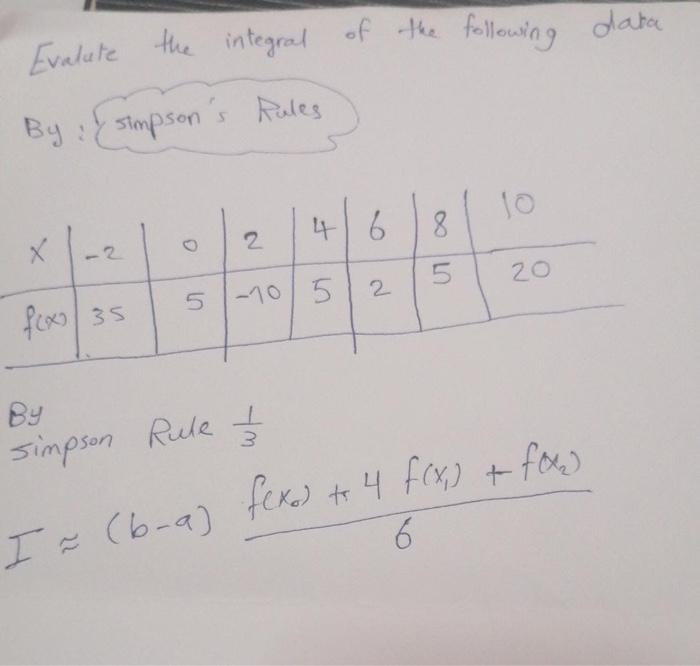 Evalute the integral of the following data
By : { simpson's Rules
x | -2 | 0 | 2 | 4 | 6 | 8 | 10
f(x) | 35 | 5 | -10 | 5 | 2 | 5 | 20
By
simpson Rule 1/3
I ≈ (b-a) f(x₀) + 4 f(x₁) + f(x₂) / 6